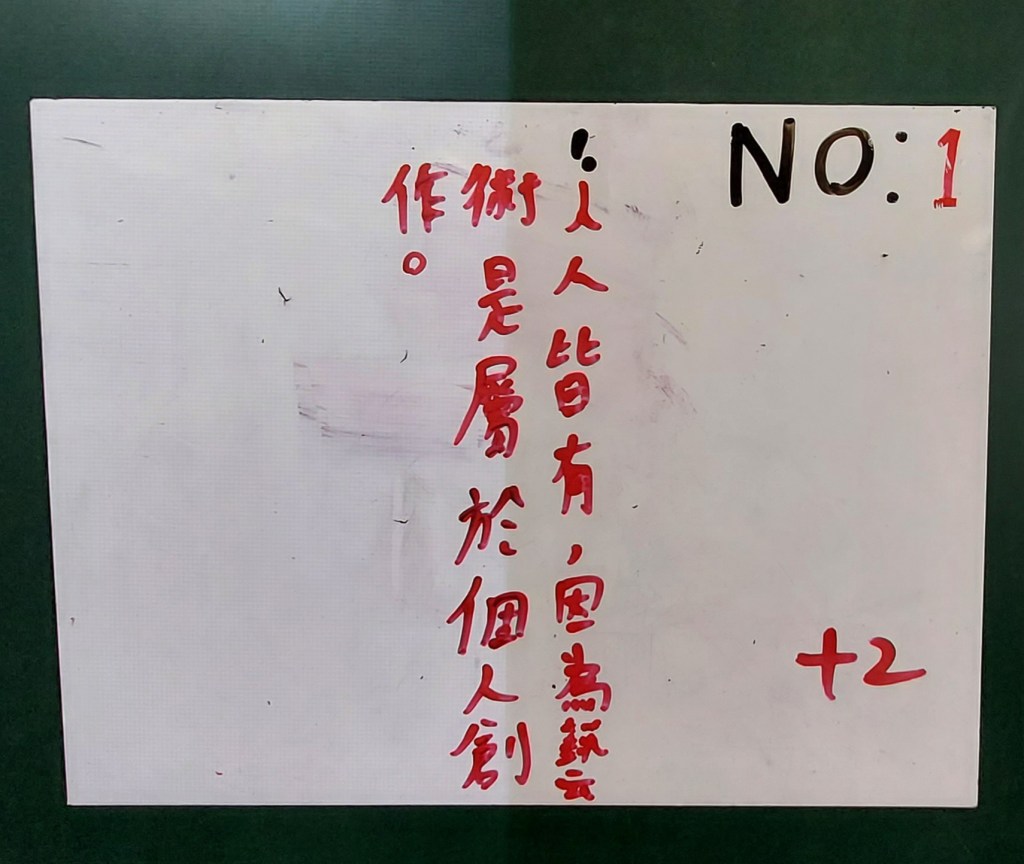 NO:1
人人皆有，因為藝
術是屬於個人創
作。
+2